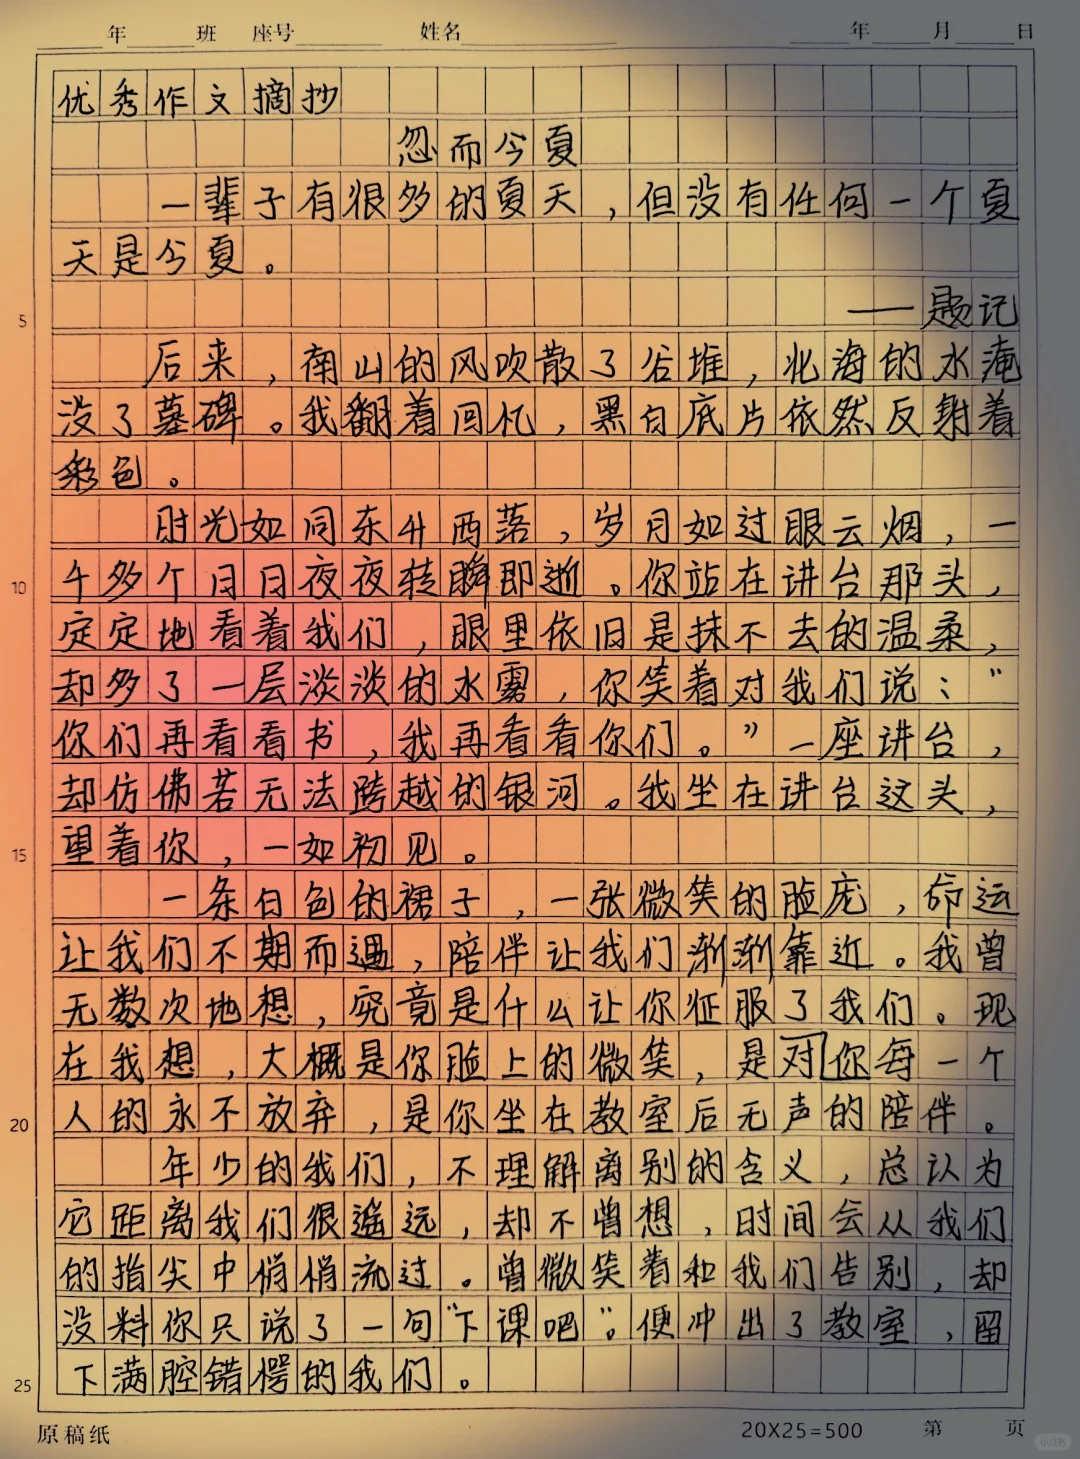 年 班 座号 姓名 年 月 日
优秀作文摘抄
忽而今夏
一辈子有很多的夏天，但没有任何一个夏
天是今夏。
5
——题记
后来，南山的风吹散了谷堆，北海的水淹
没了墓碑。我翻着回忆，黑白底片依然反射着
彩色。
时光如同东升西落，岁月如过眼云烟，一
10
千多个日日夜夜转瞬即逝。你站在讲台那头，
定定地看着我们，眼里依旧是抹不去的温柔，
却多了一层淡淡的水雾，你笑着对我们说："
你们再看看书，我再看看你们。"一座讲台，
却仿佛若无法跨越的银河。我坐在讲台这头，
15
望着你，一如初见。
一条白色的裙子，一张微笑的脸庞，命运
让我们不期而遇，陪伴让我们渐渐靠近。我曾
无数次地想，究竟是什么让你征服了我们。现
在我想，大概是你脸上的微笑，是对你每一个
20
人的永不放弃，是你坐在教室后无声的陪伴。
年少的我们，不理解离别的含义，总认为
它距离我们很遥远，却不曾想，时间会从我们
的指尖中悄悄流过。曾微笑着和我们告别，却
没料你只说了一句"下课吧"。便冲出了教室，留
25
下满腔错愕的我们。
原稿纸 20X25=500 第 页
小红书